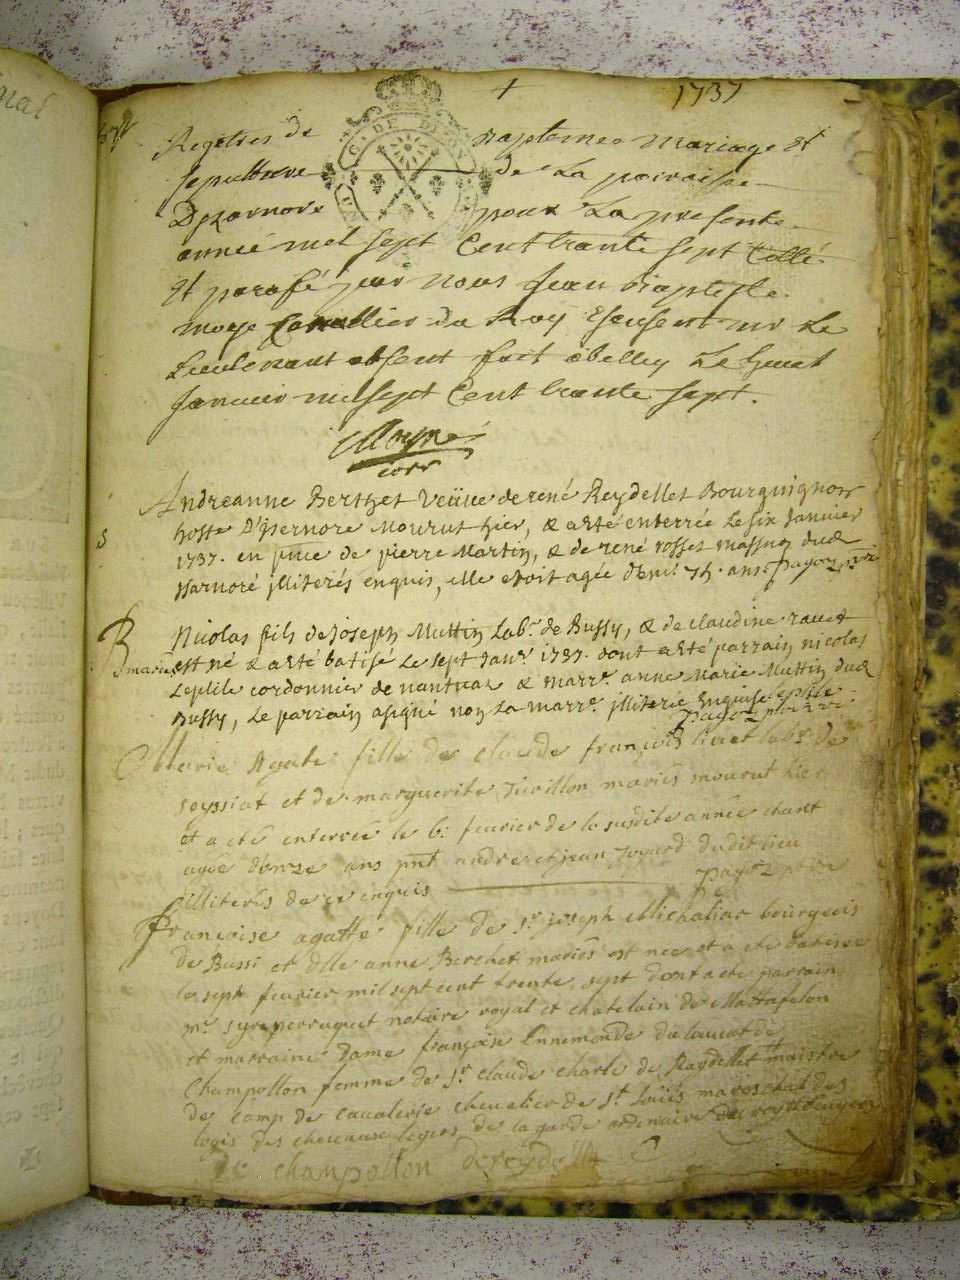 1737
Registres de baptemes mariage et
sepulture de la paroisse
Dizarnore pour la presente
année mil sept cent trante sept cotté
et parafé par nous Jean Baptiste
moyse Conseiller du Roy
Lieutenant absent fait a belley le huict
Janvier mil sept cent trante sept.
Moyse
S
Andreanne Berthet Veüve de rené Reydellet Bourguignon
hoste D'Isernore mourut hier, & a esté enterrée le six Janvier
1737. en pnce de pierre Martin, & de rené rosset masson dud
Isarnoré illiterés enquis, elle estoit agée d'env. 75. ans. payoz
B
Nicolas fils de joseph Muttin lab.r de Bussy, & de claudine ravet
mariés est né & a esté batisé le sept Janv.r 1737. dont a esté parrain nicolas
cordonnier de nantua & marr.e anne Marie Muttin dud
Bussy, le parrain a signé non la marr.e illiterée Enquise
payoz
Marie Agathe fille de claude françois lab.r de
seyssiat et de marguerite mariés mourut hier
et a eté enterrée le 6: fevrier de la susdite année etant
agée d'onze ans pnt andré et jean dudit lieu
illiterés de ce enquis payoz ptre
Françoise agatte fille de S.r joseph Michaliar bourgeois
de Bussi et dlle anne Berchet mariés est nee et a eté batisee
le sept fevrier mil sept cent trente sept dont a eté parrain
m.r perruquet notaire royal et chatelain de Mattafelon
et marraine Dame françoise Ennemonde de
Champollon femme de S.r claude charle de Reydellet maistre
de camp de cavalerie chevalier de S.t Louis mareschal des
logis des chevaux legers de la garde ordinaire du roy
de champollon dereydellet